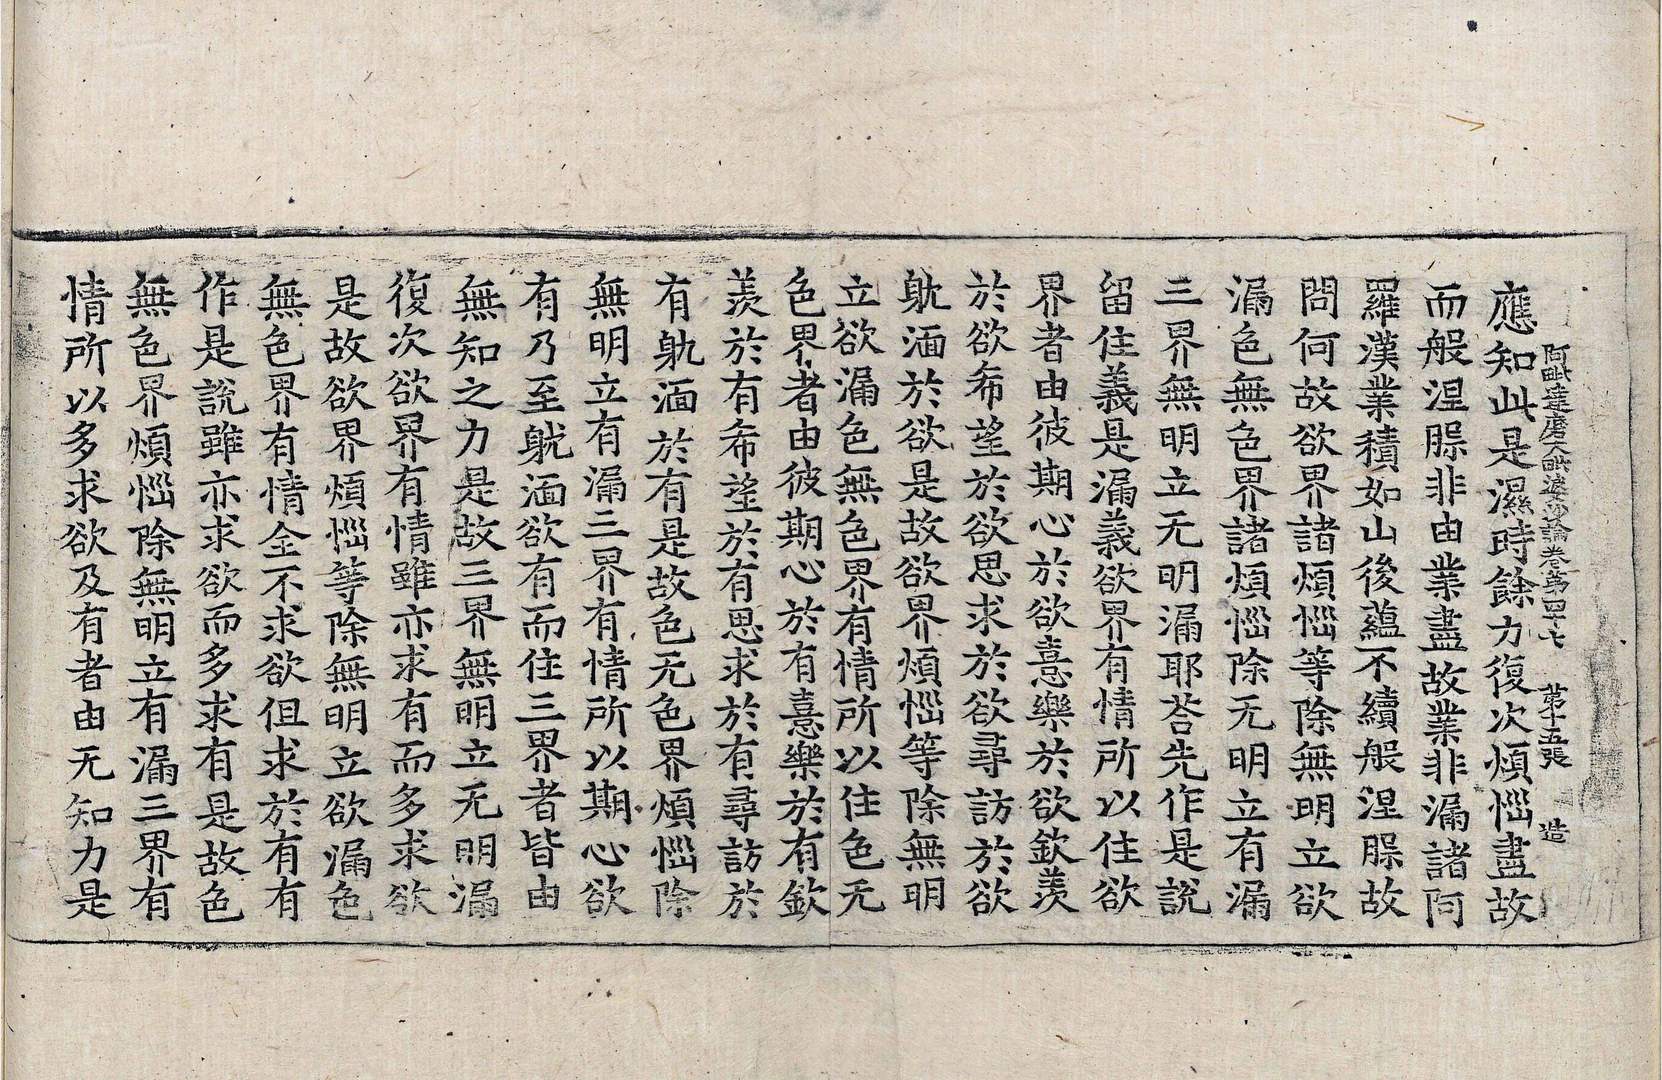 阿毗達磨大毗婆沙論卷第四十七　第十五張　造
應知此是濕時餘力復次煩惱盡故
而般涅槃非由業盡故業非漏諸阿
羅漢業積如山後蘊不續般涅槃故
問何故欲界諸煩惱等除無明立欲
漏色無色界諸煩惱除无明立有漏
三界無明立无明漏耶荅先作是說
留住義是漏義欲界有情所以住欲
界者由彼期心於欲憙樂於欲欽羨
於欲希望於欲思求於欲尋訪於欲
躭湎於欲是故欲界煩惱等除無明
立欲漏色無色界有情所以住色无
色界者由彼期心於有憙樂於有欽
羨於有希望於有思求於有尋訪於
有躭湎於有是故色无色界煩惱除
無明立有漏三界有情所以期心欲
有乃至躭湎欲有而住三界者皆由
無知之力是故三界無明立无明漏
復次欲界有情雖亦求有而多求欲
是故欲界煩惱等除無明立欲漏色
無色界有情全不求欲但求於有有
作是說雖亦求欲而多求有是故色
無色界煩惱除無明立有漏三界有
情所以多求欲及有者由无知力是